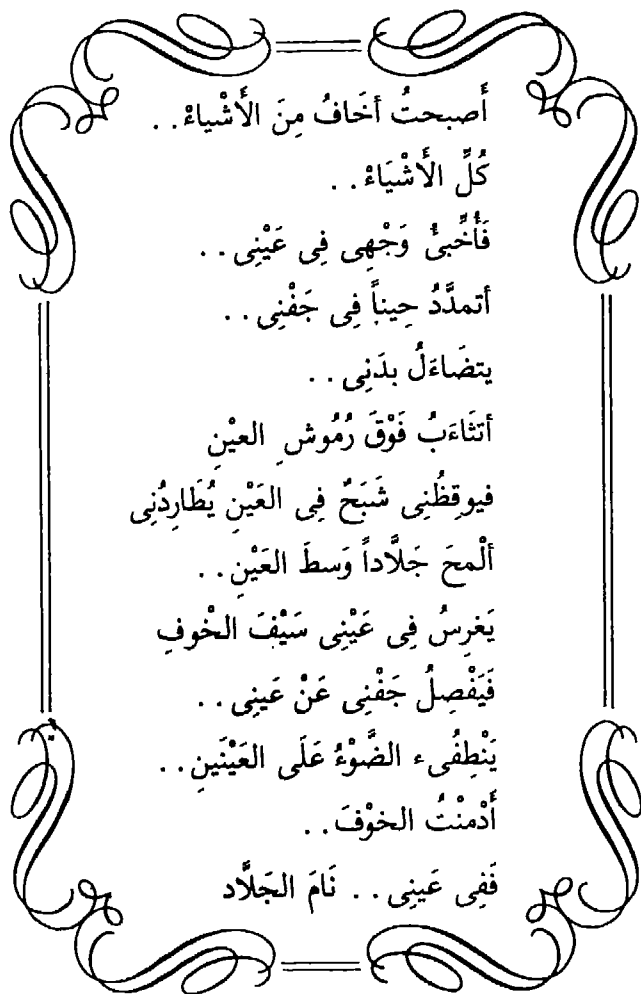 أَصبحتُ أخَافُ مِنَ الأَشْياءْ..
كُلِّ الأَشْيَاءْ..
فَأُخَبئُ وَجْهِى فِى عَيْنِى..
أتمدَّدُ حِيناً فِى جَفْنِى..
يتضَاءَلُ بدَنِى..
أتثَاءَبُ فَوْقَ رُمُوشِ العيْنِ
فيوقِظُنِى شَبَحٌ فِى العَيْنِ يُطَارِدُنِى
ألْمحَ جَلَّاداً وَسطَ العَيْنِ..
يَغرِسُ فِى عَيْنِى سَيْفَ الخْوفِ
فَيَفْصِلُ جَفْنِى عَنْ عَينِى..
يَنْطِفُىء الضَّوْءُ عَلَى العَيْنَينِ..
أَدْمنْتُ الخوْفَ..
فَفِى عَينِى.. نَامَ الجَلاَّد